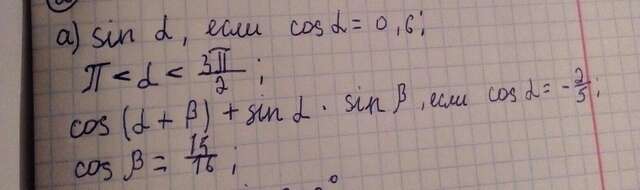 а) sin α, если cos α = 0,6;
π < α < 3π/2;
cos (α + β) + sin α · sin β, если cos α = -2/5;
cos β = 15/16;